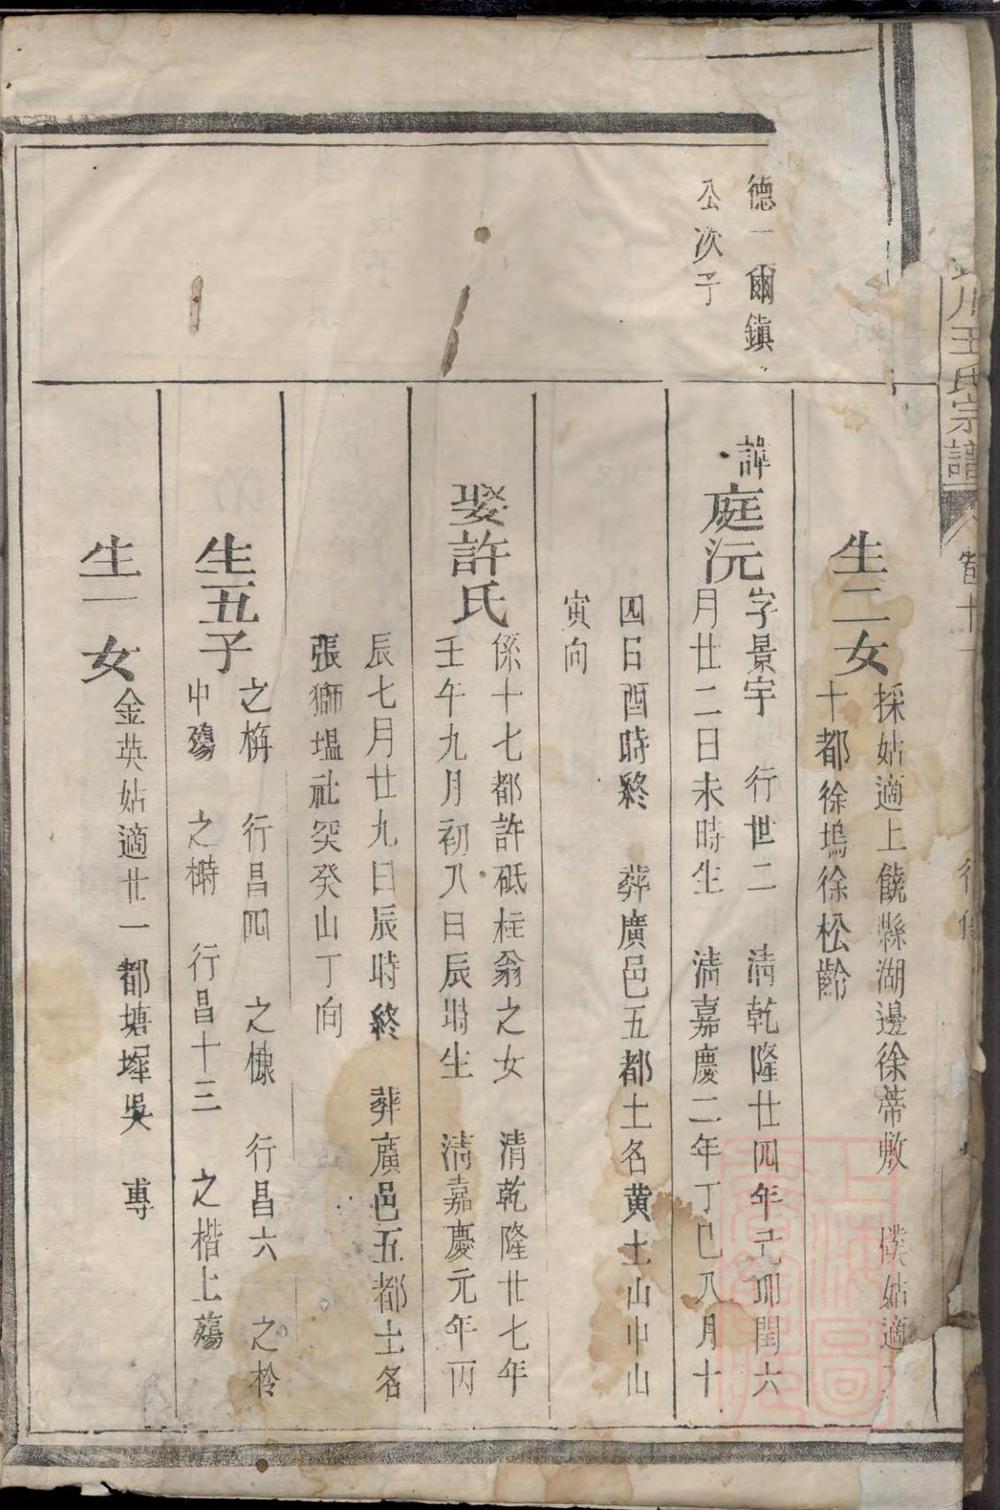 川王氏宗譜
生二女
採姑適上饒縣湖邊徐蒂敷 僕姑適
十都徐塢徐松齡
德一爾鎮
公次子
諱
庭沅
字景宇 行世二 清乾隆廿四年 閏六
月廿二日未時生 清嘉慶二年丁巳八月十
四日酉時終 葬廣邑五都土名黄土山申山
寅向
娶許氏
係十七都許砥柱翁之女 清乾隆廿七年
壬午九月初八日辰時生 清嘉慶元年丙
辰七月廿九日辰時終 葬廣邑五都土名
張獅塭社突癸山丁向
生五子
之栴 行昌四 之槺 行昌六 之柃
中殤 之榯 行昌十三 之楷上殤
生一女
金英姑適廿一都塘墀吳 専